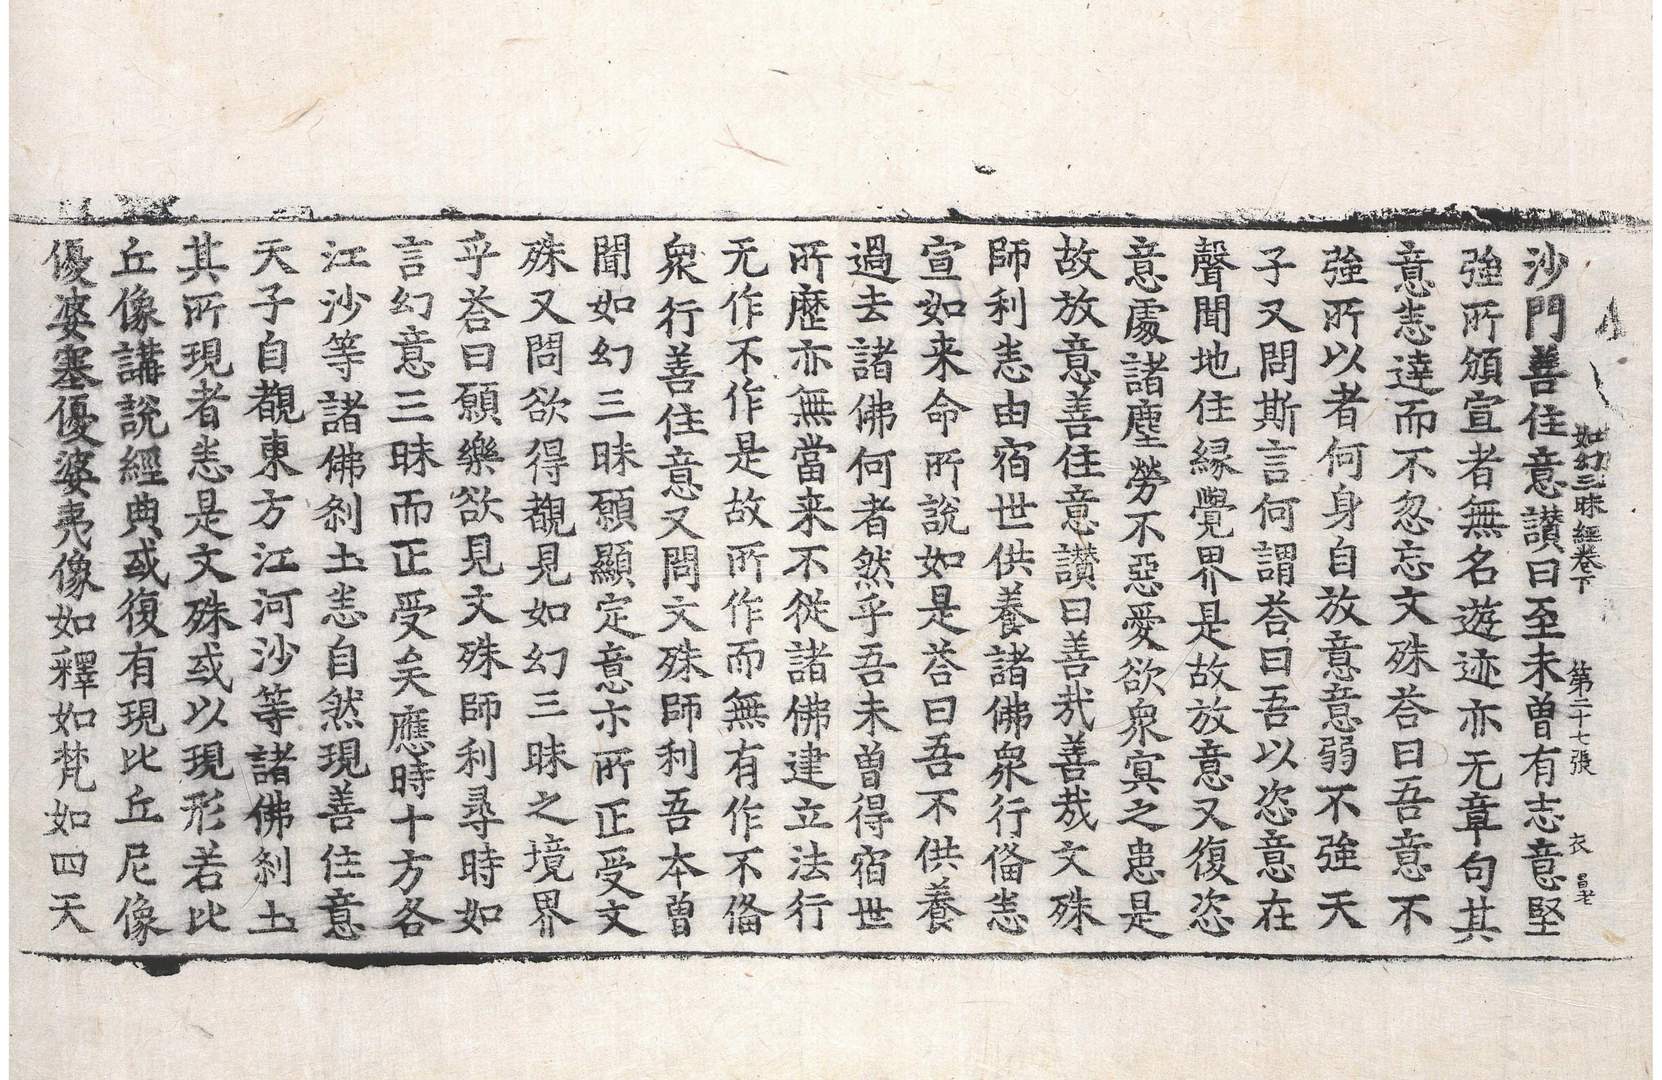 如幻三昧經卷下　第二十七張　衣　昌老
沙門善住意讃曰至未曾有志意堅
強所頒宣者無名遊迹亦无章句其
意恚達而不忽忘文殊荅曰吾意不
強所以者何身自放意意弱不強天
子又問斯言何謂荅曰吾以恣意在
聲聞地住緣覺界是故放意又復恣
意處諸塵勞不惡愛欲衆冥之患是
故放意善住意讃曰善哉善哉文殊
師利恚由宿世供養諸佛衆行俻恚
宣如来命所說如是荅曰吾不供養
過去諸佛何者然乎吾未曾得宿世
所歷亦無當来不從諸佛建立法行
无作不作是故所作而無有作不俻
衆行善住意又問文殊師利吾本曾
聞如幻三昧願顯定意亦所正受文
殊又問欲得觀見如幻三昧之境界
乎荅曰願樂欲見文殊師利尋時如
言幻意三昧而正受矣應時十方各
江沙等諸佛刹土恚自然現善住意
天子自觀東方江河沙等諸佛刹土
其所現者恚是文殊或以現形若比
丘像講說經典或復有現比丘尼像
優婆塞優婆夷像如釋如梵如四天